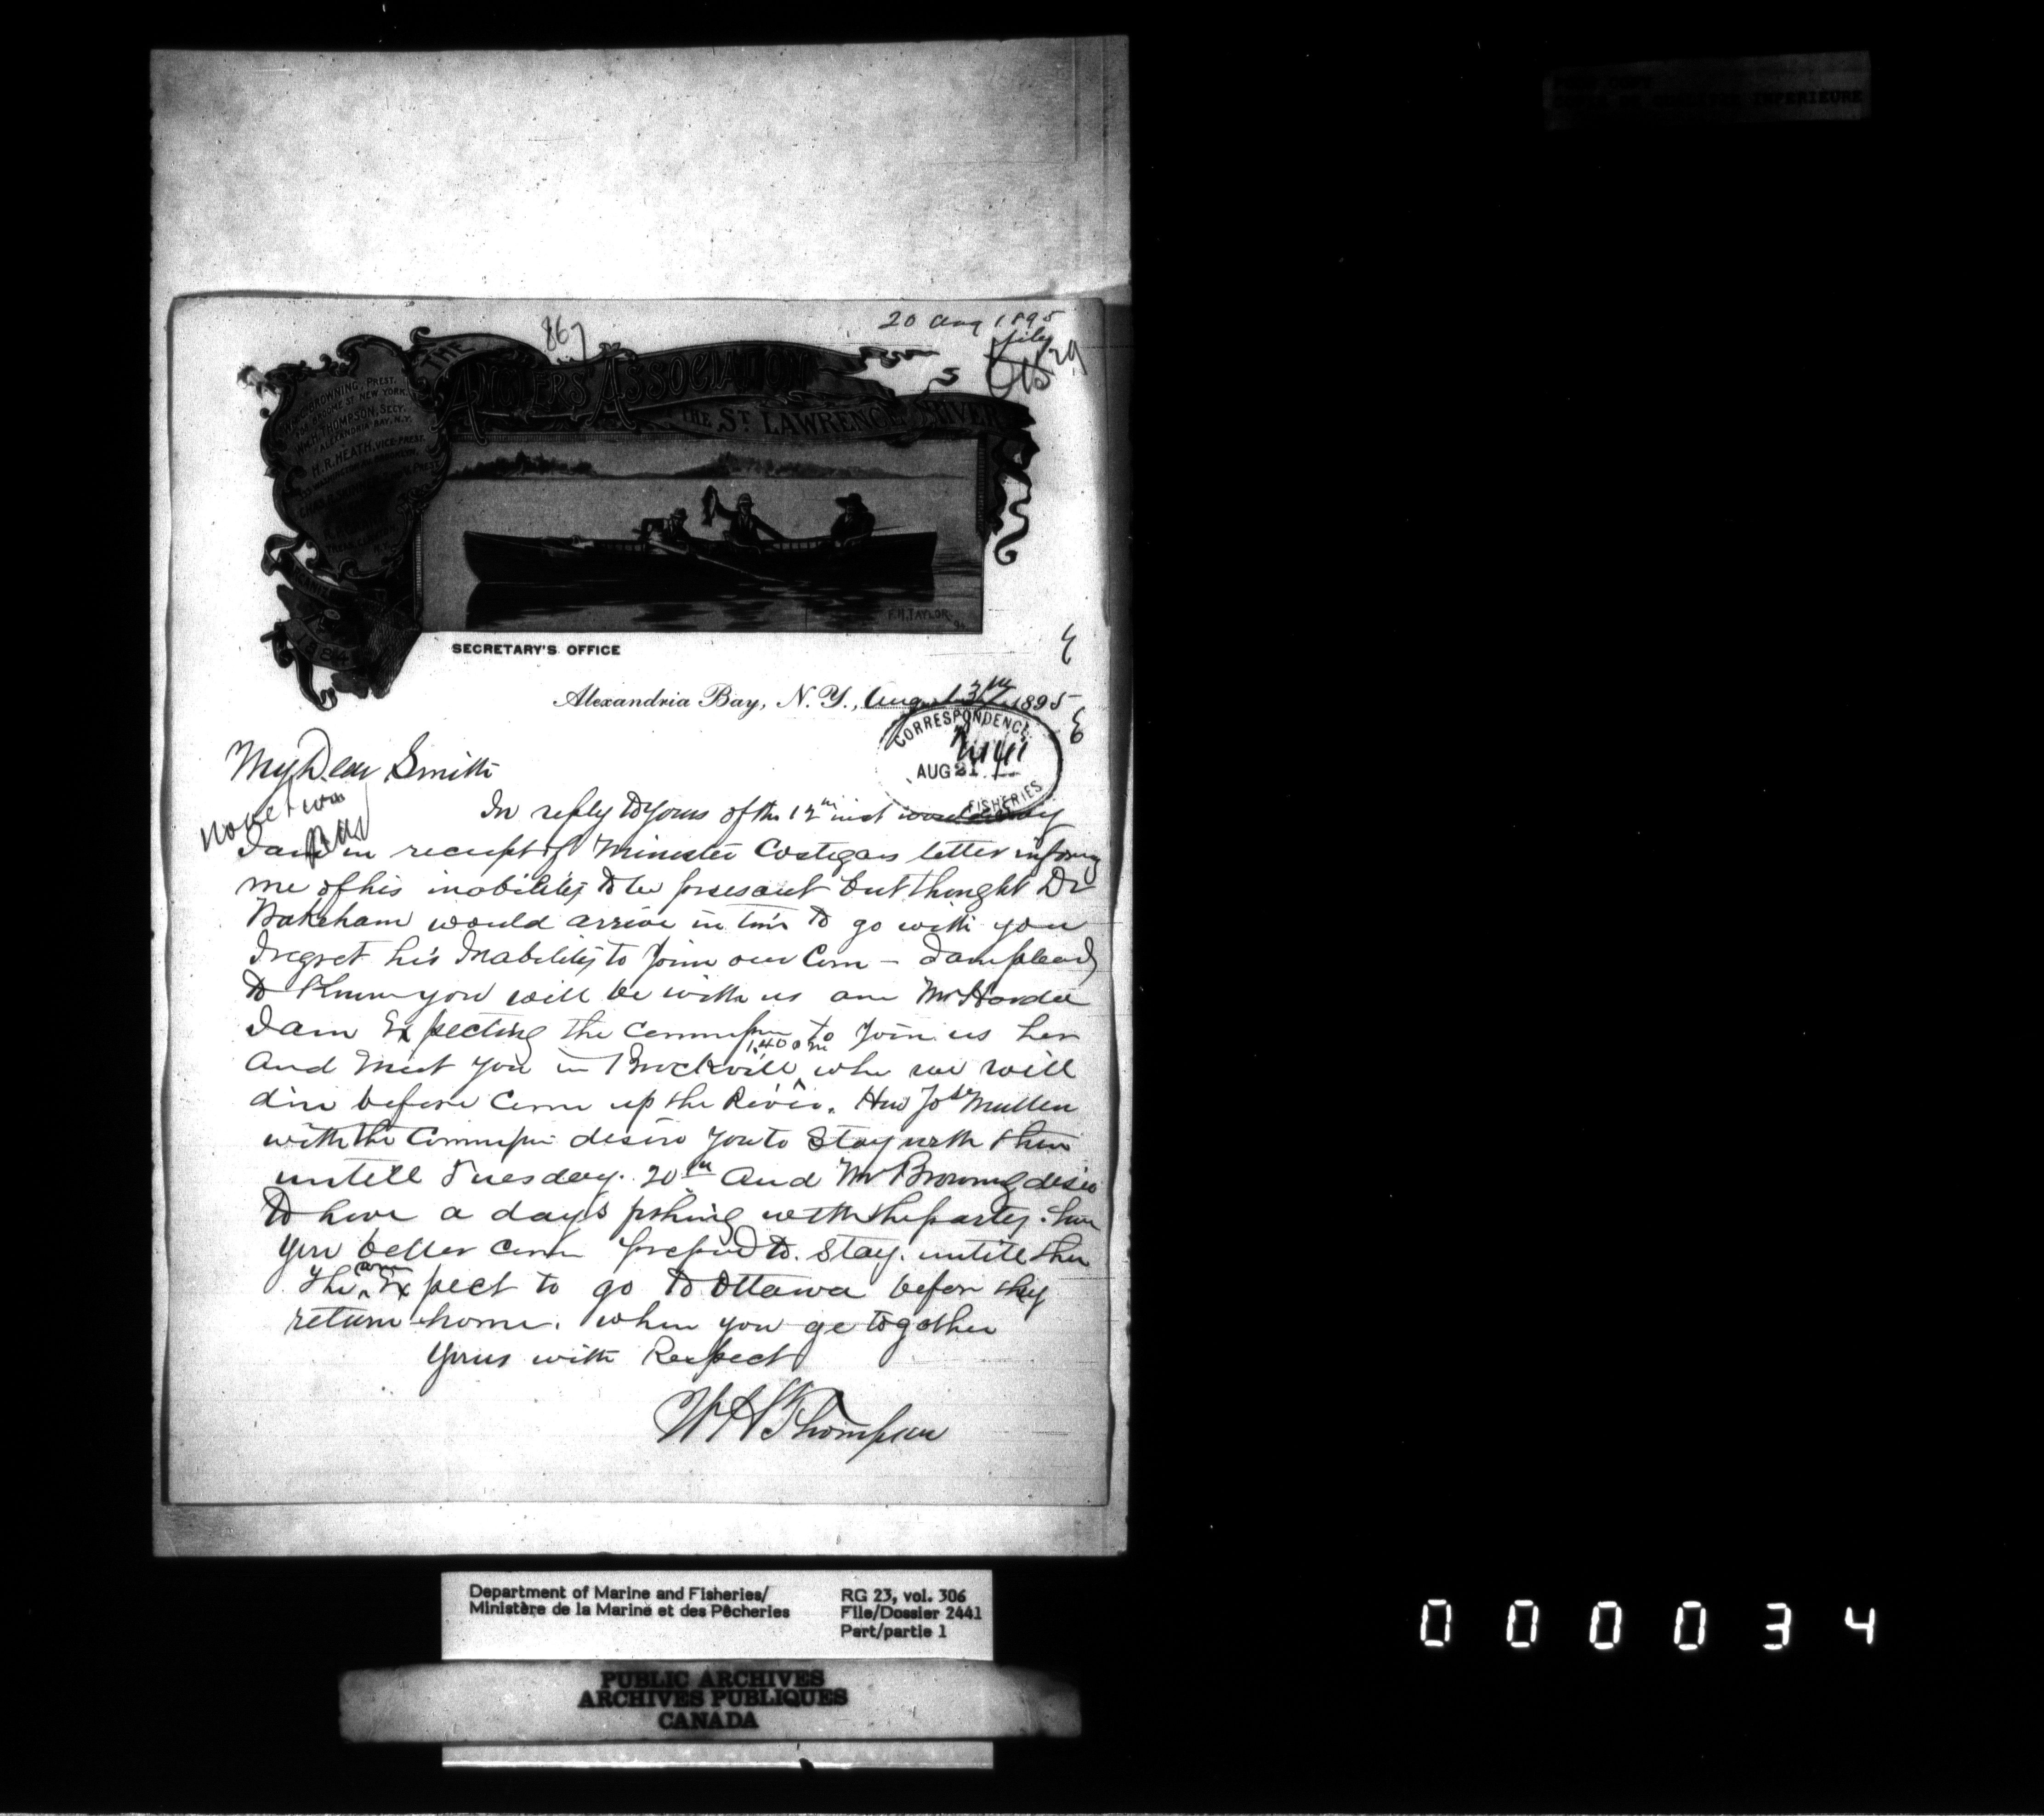 COPIE DE QUALITEE INFERIEURE
20 Aug 1895
file
867
THE
ANGLERS ASSOCIATION
THE ST. LAWRENCE RIVER
W.C. BROWNING, PREST.
BROOME ST. NEW YORK.
WM. H. THOMPSON, SECY.
ALEXANDRIA BAY, N.Y.
H.R. HEATH, VICE-PREST.
F.H. TAYLOR.
SECRETARY'S OFFICE
Alexandria Bay, N.Y., August 13th 1895
CORRESPONDENCE
AUG 21
FISHERIES
My Dear Smith
In reply to yours of the 12th inst would say
I am in receipt of Minister Costigans letter informg
me of his inability to be presant but thought Dr
Wakeham would arrive in time to go with you
I regret his Inability to Join our Com – I am pleasd
to Know you will be with us and Mr
I am Expecting the Commission to Join us her
1.40
And meet you in Brockvill, whe we will
dine before Come up the River. Hon Mullen
with the Commission desire you to Stay with them
untill Tuesday. 20th And Mr Browning desire
to have a day's fishing with the party.
you better come prepred to. stay. untill then
The Expect to go to Ottawa befor they
return home. when you go together
Yours with Respect
W H Thompson
Department of Marine and Fisheries/
Ministère de la Marine et des Pêcheries
RG 23, vol. 306
File/Dossier 2441
Part/partie 1
PUBLIC ARCHIVES
ARCHIVES PUBLIQUES
CANADA
000034